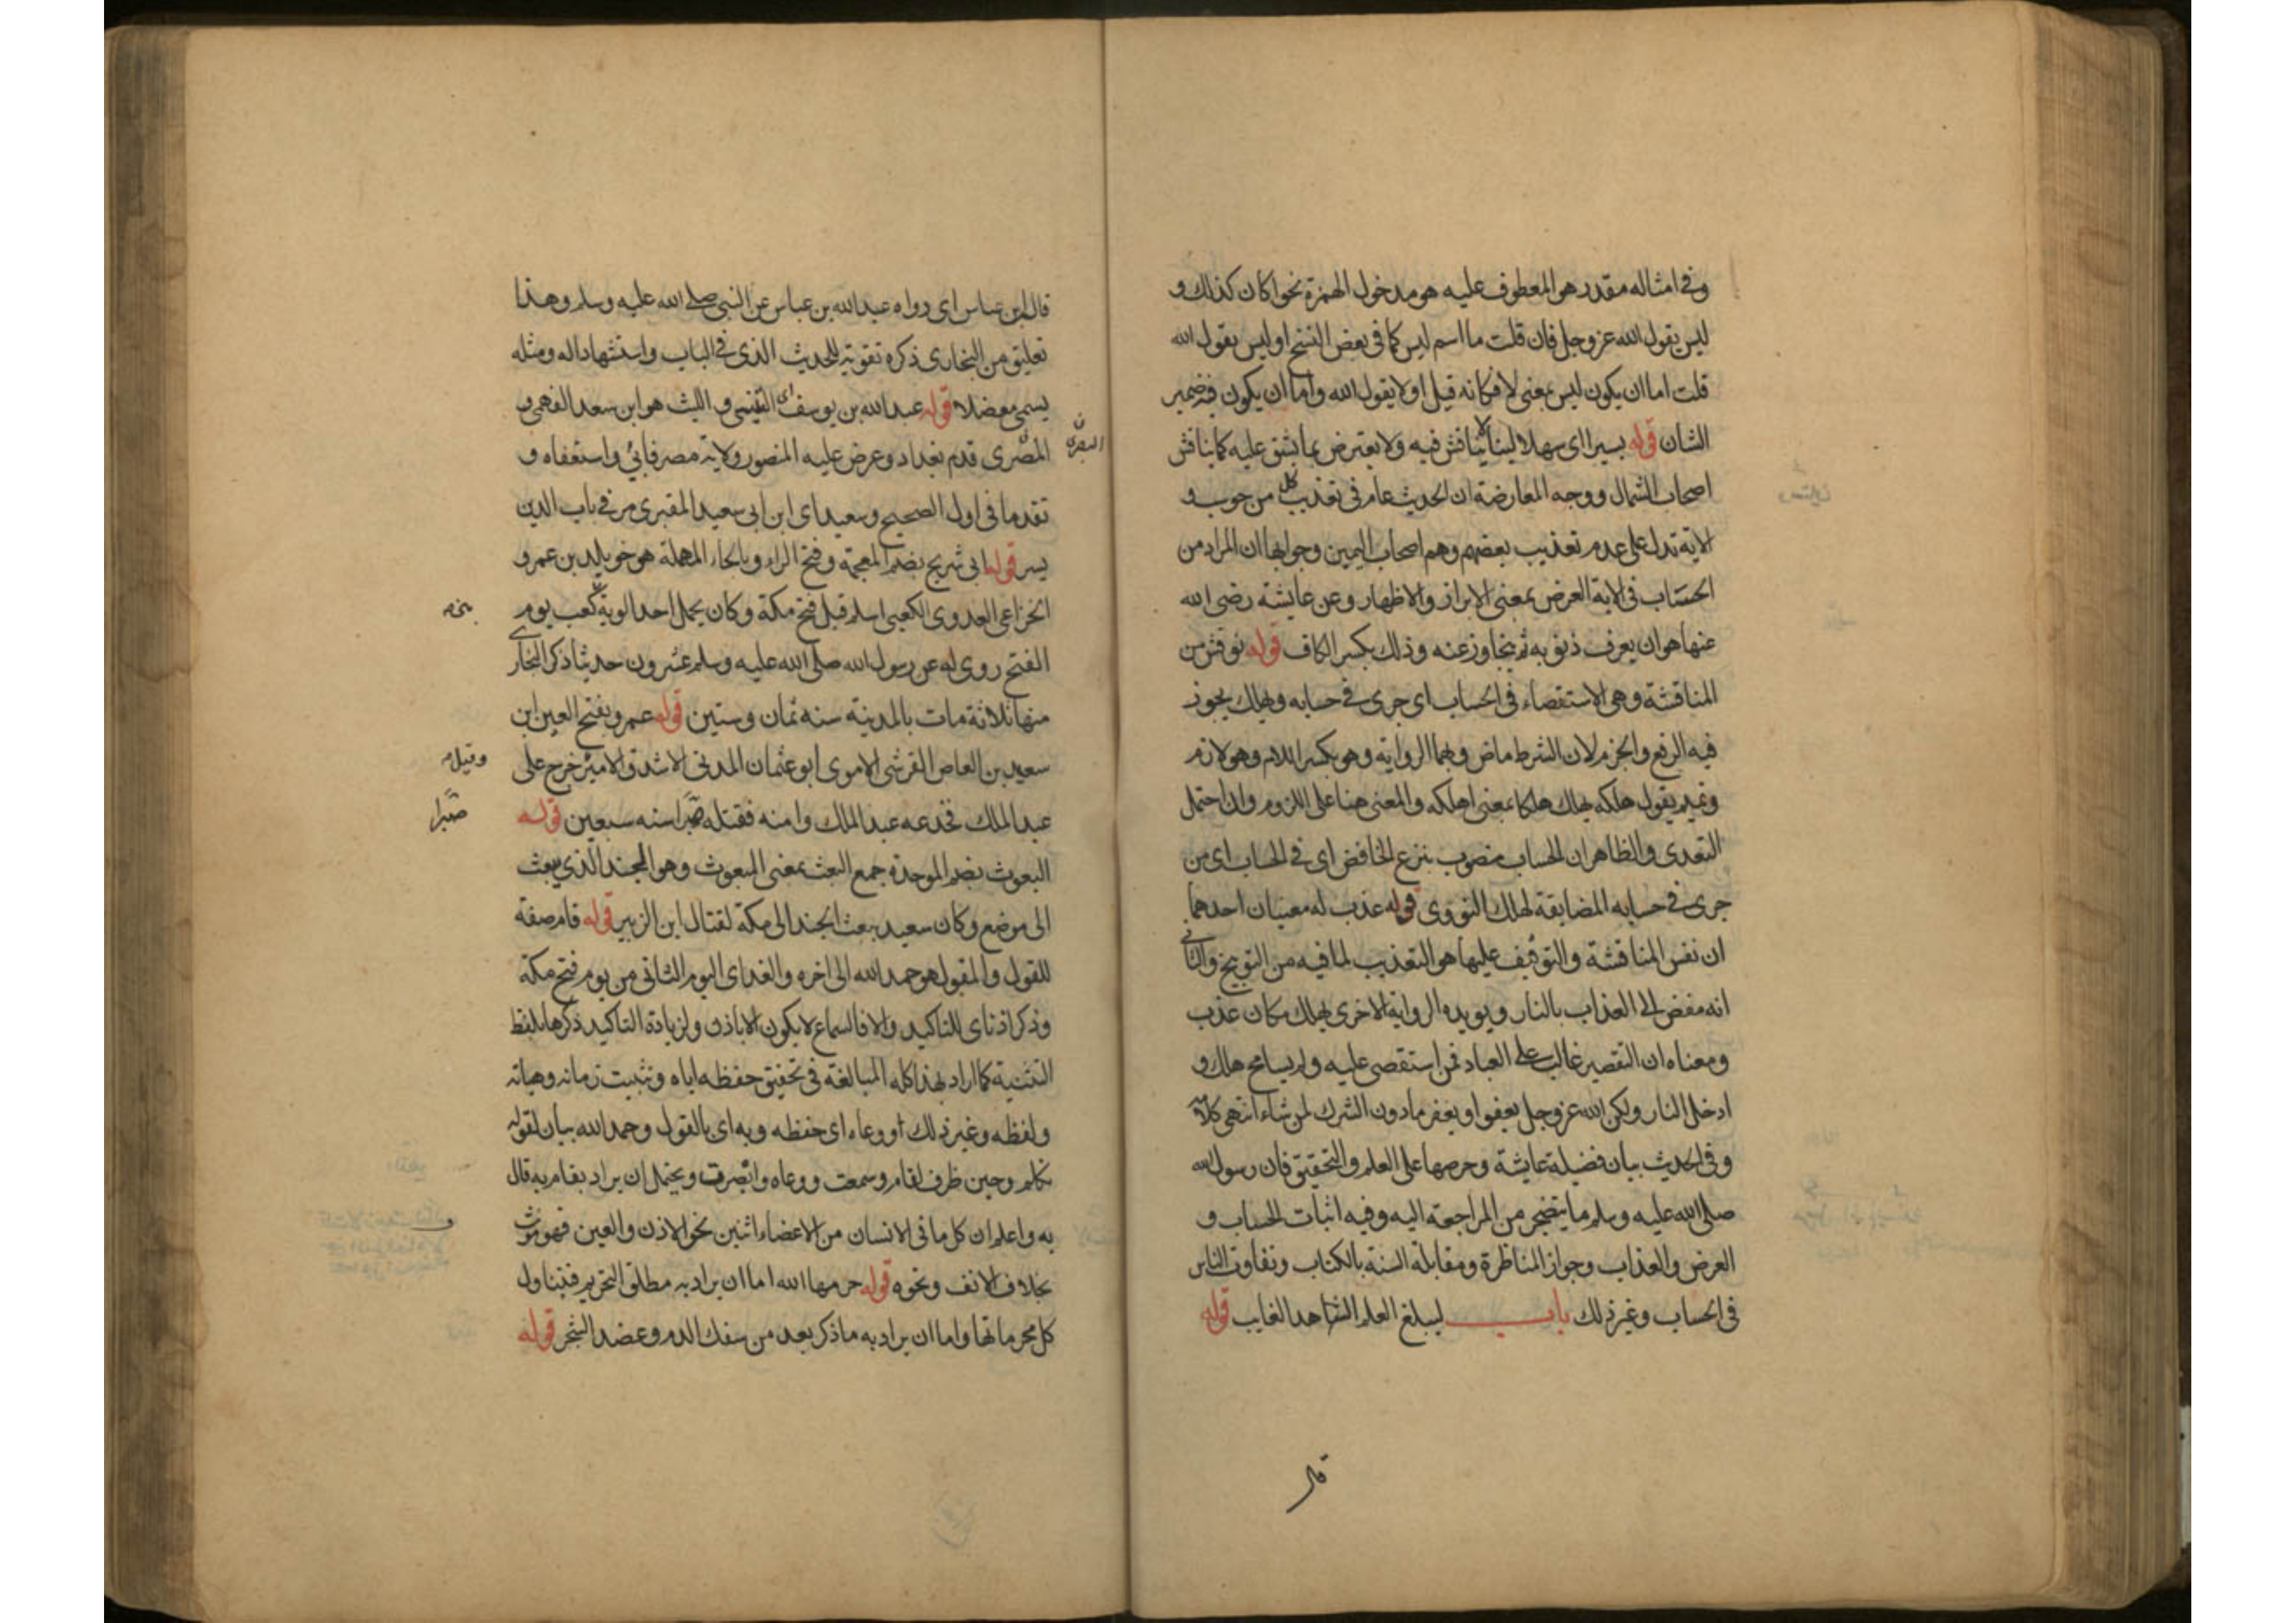 وفي امثاله مقدر هو المعطوف عليه هو مدخول الهمزة نحو اكان كذلك و
ليس يقول الله عز وجل فان قلت ما اسم ليس كما في بعض النسخ اوليس يقول الله
قلت اما ان يكون ليس بمعنى لا فكانه قيل اولا يقول الله واما ان يكون فيه ضمير
الشان قوله يسيرا اى سهلا لينا لا يناقش فيه ولا يعترض بما يشق عليه كما يناقش
اصحاب الشمال ووجه المعارضة ان الحديث عام في تعذيب كل من حوسب و
الاية تدل على عدم تعذيب بعضهم وهم اصحاب اليمين وجوابها ان المراد من
الحساب في الاية العرض بمعنى الابراز والاظهار وعن عايشة رضى الله
عنها هو ان يعرف ذنوبه ثم يتجاوز عنه وذلك بكسر الكاف قوله نوقش من
المناقشة وهى الاستقصاء في الحساب اى جرى في حسابه ويهلك يجوز
فيه الرفع والجزم لان الشرط ماض وبهما الرواية وهو بكسر اللام وهو لازم
وتميم يقول هلكه يهلك هلكا بمعنى اهلكه والمعنى هنا على اللزوم وان احتمل
التعدى والظاهر ان الحساب منصوب بنزع الخافض اى في الحساب اى من
جرى في حسابه المضايقة لهلك النووى قوله عذب له معنيان احدهما
ان نفس المناقشة والتوقيف عليها هو التعذيب لما فيه من التوبيخ والثانى
انه مفض الى العذاب بالنار ويويده الرواية الاخرى يهلك مكان عذب
ومعناه ان التقصير غالب على العباد فمن استقصى عليه ولم يسامح هلك و
ادخل النار ولكن الله عز وجل يعفو او يغفر ما دون الشرك لمن شاء انتهى كلامه
وفي الحديث بيان فضيلة عايشة وحرصها على العلم والتحقيق فان رسول الله
صلى الله عليه وسلم ما يتضجر من المراجعة اليه وفيه اثبات الحساب و
العرض والعذاب وجواز المناظرة ومقابلة السنة بالكتاب وتفاوت الناس
في الحساب وغير ذلك باب ليبلغ العلم الشاهد الغايب قوله
قال
قال ابن عباس اى رواه عبد الله بن عباس عن النبي صلى الله عليه وسلم وهذا
تعليق من البخارى ذكره تقوية للحديث الذى في الباب واستشهادا له ومثله
يسمى معضلا قوله عبد الله بن يوسف اى التنيسى والليث هو ابن سعد الفهمى
المصرى قدم بغداد وعرض عليه المنصور ولاية مصر فابى واستعفاه و
المصرى
تقدما في اول الصحيح وسعيد اى ابن ابى سعيد المقبرى مر في باب الدين
يسر قوله ابى شريح بضم المعجمة وفتح الراء وبالحاء المهملة هو خويلد بن عمرو
الخزاعى العدوى الكعبى اسلم قبل فتح مكة وكان يحمل احد الوية كعب يوم
الفتح روى له عن رسول الله صلى الله عليه وسلم عشرون حديثا ذكر البخارى
منها ثلاثة مات بالمدينة سنه ثمان وستين قوله عمرو بفتح العين ابن
سعيد بن العاص القرشى الاموى ابو عثمان المدنى الاشدق الامير خرج على
وقيل
عبد الملك فخدعه عبد الملك وامنه فقتله صبرا سنه سبعين قوله
صبرا
البعوث بضم الموحدة جمع البعث بمعنى المبعوث وهو الجند الذى يبعث
الى موضع وكان سعيد يبعث الجند الى مكة لقتال ابن الزبير قوله قام صفة
للقول والمقول هو حمد الله الى اخره والغد اى اليوم الثانى من يوم فتح مكة
وذكر اذناى للتاكيد والا فالسماع لا يكون الا باذن ولزيادة التاكيد ذكرها بلفظ
التثنية كما اراد بهذا كله المبالغة في تحقيق حفظه اياه وتثبيت زمانه وهياته
ولفظه وغير ذلك او وعاء اى حفظه وبه اى بالقول وحمد الله بيان لقوله
تكلم وحين ظرف لقام وسمعت ووعاه وابصرت ويحتمل ان يراد بقام به قال
به واعلم ان كل ما في الانسان من الاعضاء اثنين نحو الاذن والعين فهو مؤنث
بخلاف الانف ونحوه قوله حرمها الله اما ان يراد به مطلق التحريم فيتناول
كل محرماتها واما ان يراد به ما ذكر بعد من سفك الدم وعضد الشجر قوله